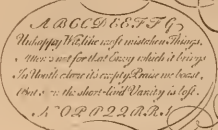 A B C C D E E F F G
Unhappy Wit, like most mistaken Things,
Attones not for that Envy which it brings
In Youth alone its empty Praise we boast,
But soon the short-liv'd Vanity is lost.
O P R R